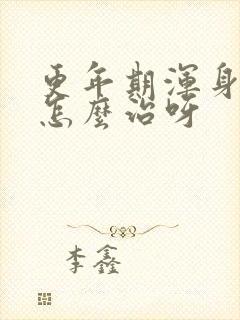 更年期渾身
怎麼治呀
李鑫